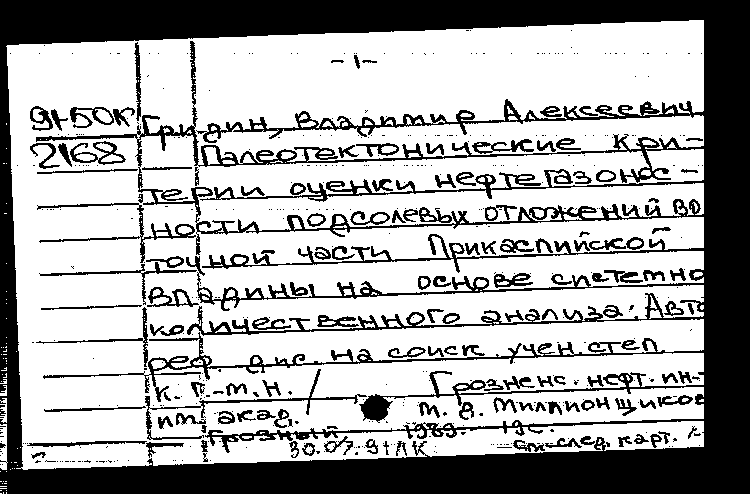 -1-
91-50К Гридин, Владимир Алексеевич
2168 Палеотектонические кри-
терии оценки нефтегазонос-
ности подсолевых отложений во
точной части Прикаспийской
впадины на основе системно
количественного анализа: Авто
реф. дис. на соиск. учен. степ
к. г.-м.н. / Грозненс. нефт. ин-т
им. акад. М. Д. Миллионщиков
Грозный 1989. - 19с.
30.07.91 ЛК См. след. карт.